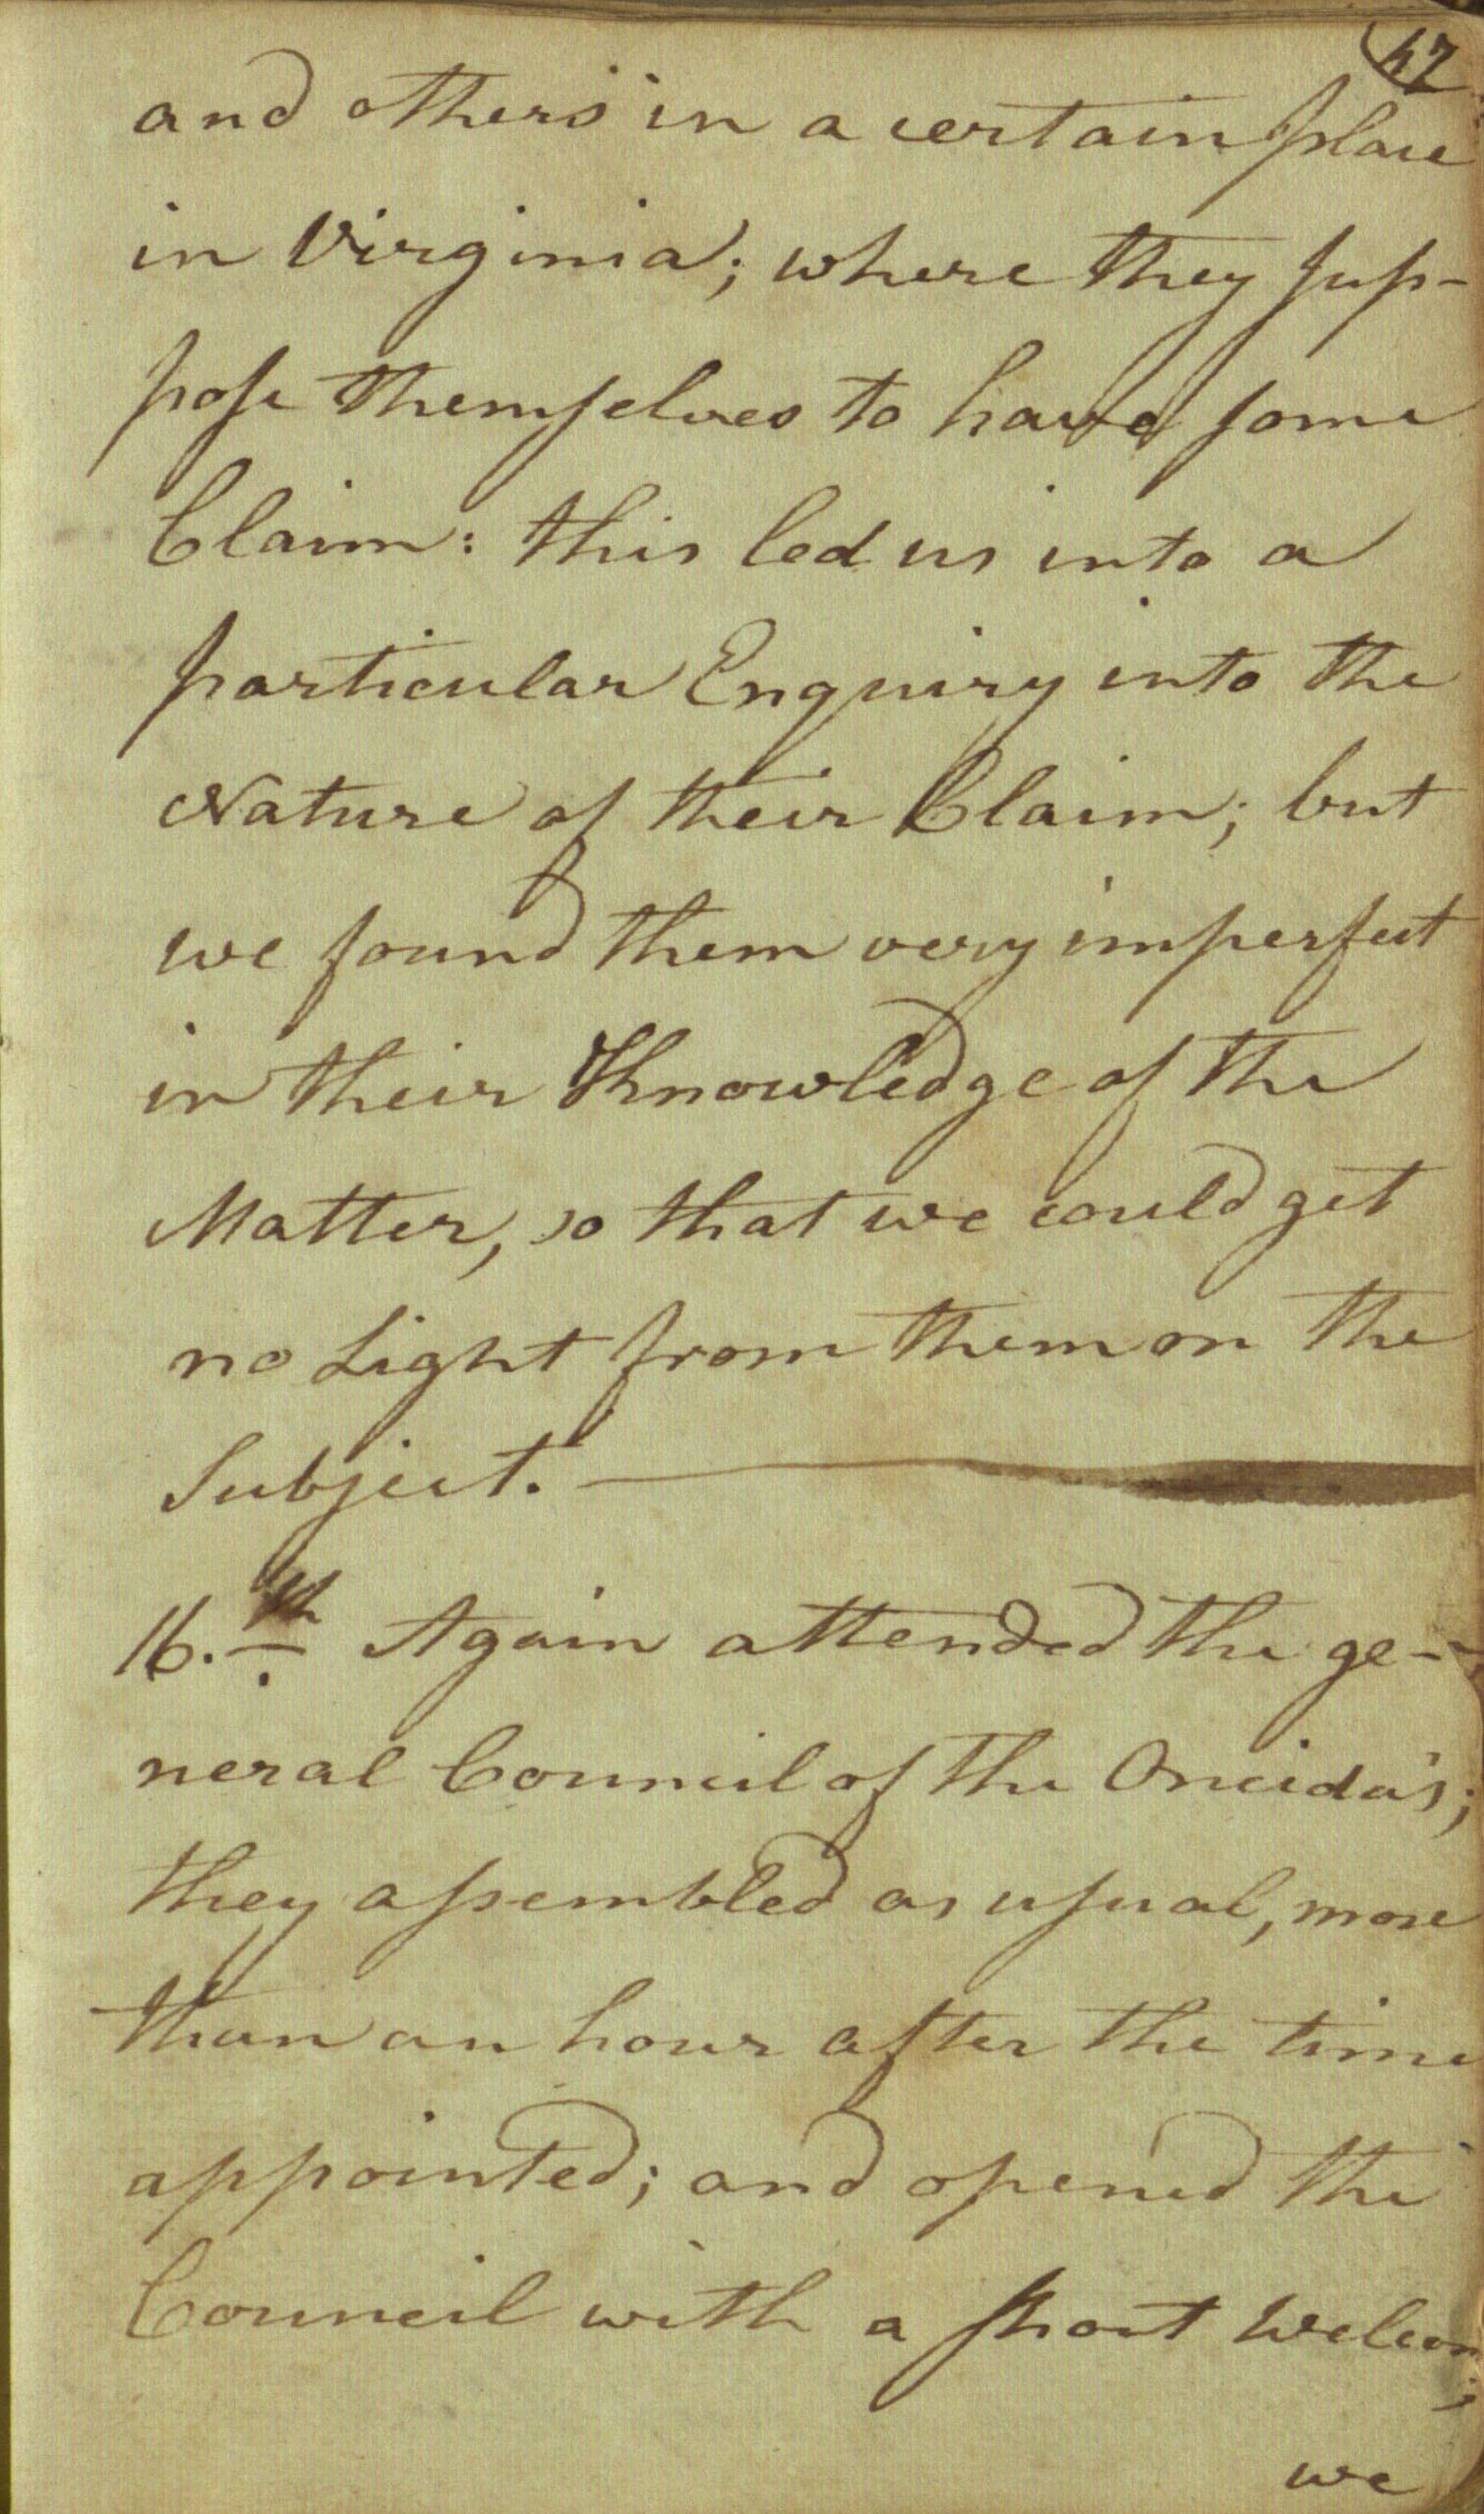 47
and others in a certain place
in Virginia; where they sup-
pose themselves to have some
Claim: this led us into a
particular Enquiry into the
Nature of their Claim; but
we found them very imperfect
in their Knowledge of the
Matter, so that we could get
no Light from them on the
Subject.
16.th Again attended the ge-
neral Council of the Oneida's;
they assembled as usual, more
than an hour after the time
appointed; and opened the
Council with a short Welcom;
we